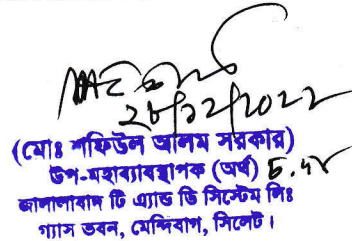 ২৮/১২/২০২২
(মোঃ শফিউল আলম সরকার)
উপ-মহাব্যবস্থাপক (অর্থ)
জালালাবাদ টি এ্যান্ড ডি সিস্টেম লিঃ
গ্যাস ভবন, মেন্দিবাগ, সিলেট।